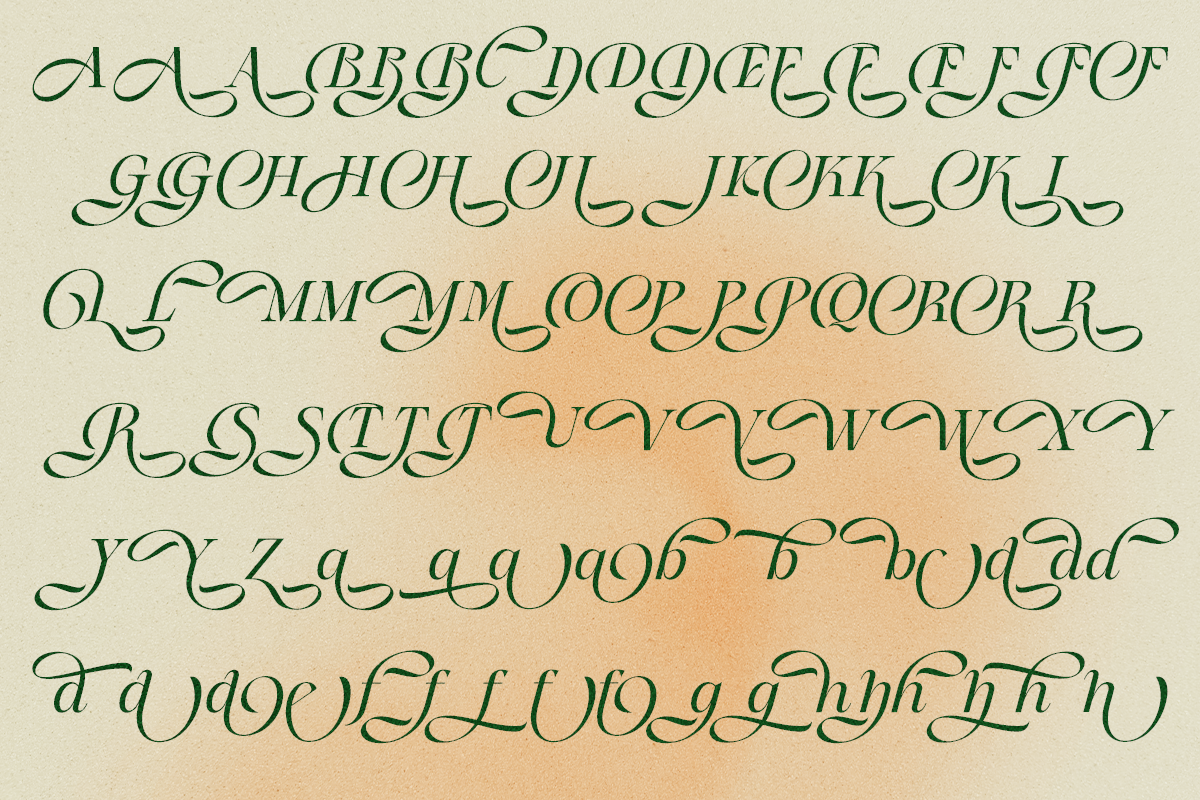 A A A B B B C D D D E E E E F F F
G G H H H I I J K K K K L
L L M M M M O P P P Q R R R
R S S T T T U V V W W X Y
Y Y Z a a a a b b b c d d d
d d d e f f f f f g g h h h h h h